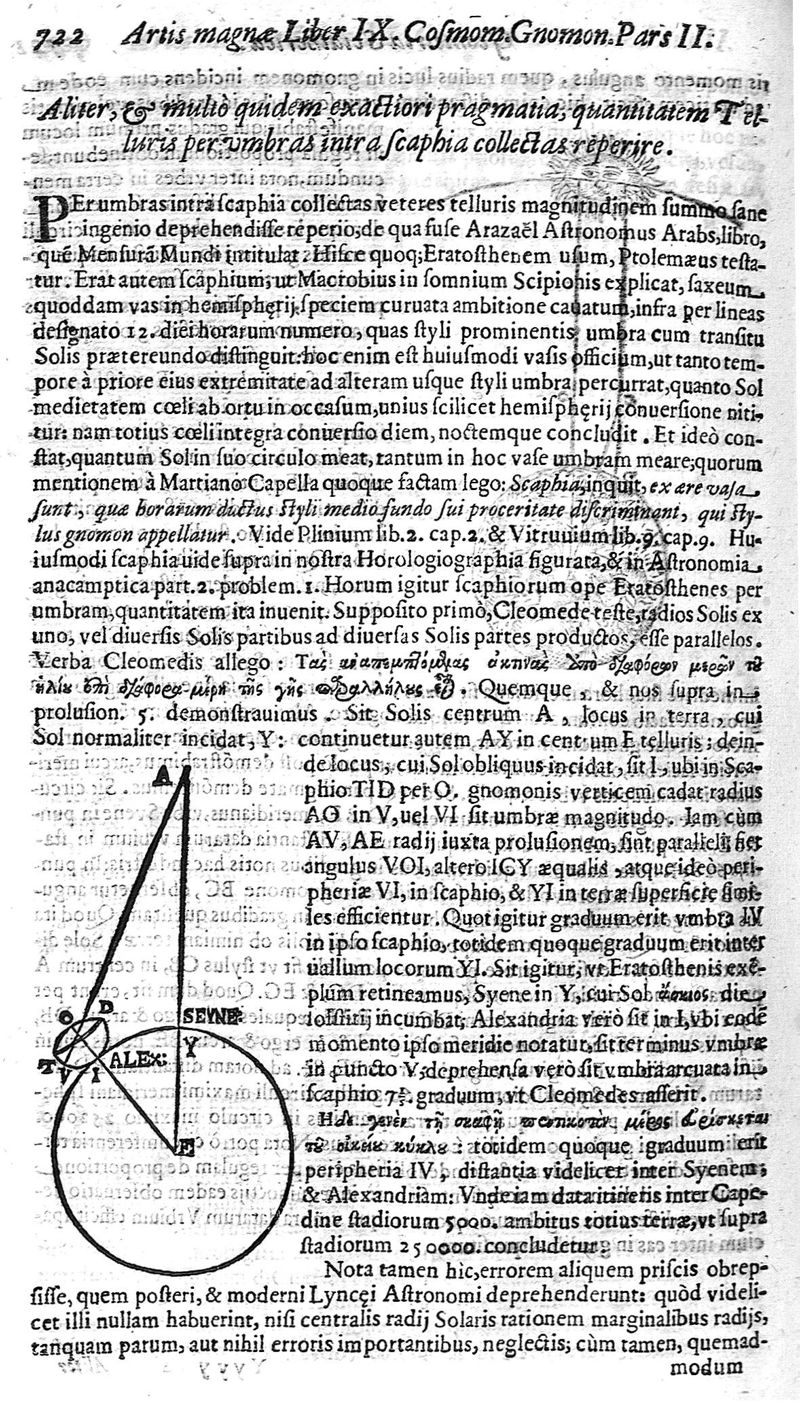 722 Artis magnæ Liber IX. Coſmom. Gnomon. Pars II.
Aliter, & multò quidem exactiori pragmatia, quantitatem Tel-
luris per vmbras intra ſcaphia collectas reperire.
PEr umbras intra ſcaphia collectas veteres telluris magnitudinem ſummo ſane
ingenio deprehendiſſe reperio; de qua fuſe Arazaël Aſtronomus Arabs, libro,
quē Menſurā Mundi intitulat. Hiſce quoq; Eratoſthenem uſum, Ptolemæus teſta-
tur. Erat autem ſcaphium, ut Macrobius in ſomnium Scipionis explicat, ſaxeum
quoddam vas in hemiſpherij ſpeciem curuata ambitione cauatum, infra per lineas
deſignato 12. diei horarum numero, quas ſtyli prominentis umbra cum tranſitu
Solis prætereundo diſtinguit: hoc enim eſt huiuſmodi vaſis officium, ut tanto tem-
pore à priore eius extremitate ad alteram uſque ſtyli umbra percurrat, quanto Sol
medietatem cœli ab ortu in occaſum, unius ſcilicet hemiſphęrij conuerſione niti-
tur: nam totius cœli integra conuerſio diem, noctemque concludit. Et ideò con-
ſtat, quantum Sol in ſuo circulo meat, tantum in hoc vaſe umbram meare; quorum
mentionem à Martiano Capella quoque factam lego: Scaphia, inquit, ex ære vaſa
ſunt, quæ horarum ductus ſtyli medio fundo ſui proceritate diſcriminant, qui ſty-
lus gnomon appellatur. Vide Plinium lib. 2. cap. 2. & Vitruuium lib. 9. cap. 9. Hu-
iuſmodi ſcaphia uide ſupra in noſtra Horologiographia figurata, & in Aſtronomia
anacamptica part. 2. problem. 1. Horum igitur ſcaphiorum ope Eratoſthenes per
umbram, quantitatem ita inuenit. Suppoſito primò, Cleomede teſte, radios Solis ex
uno, vel diuerſis Solis partibus ad diuerſas Solis partes productos, eſſe parallelos.
Verba Cleomedis allego: Τὰς ἀκτῖνας ἀπὸ διαφόρων μερῶν τοῦ
ἡλίου ἐπὶ διάφορα μέρη τῆς γῆς παραλλήλους. Quemque, & nos ſupra in
proluſion. 5. demonſtrauimus. Sit Solis centrum A, locus in terra, cui
Sol normaliter incidat, Y: continuetur autem AY in centrum E telluris; dein-
de locus, cui Sol obliquus incidat, ſit I, ubi in Sca-
phio TID per O. gnomonis verticem cadat radius
AO in V, uel VI ſit umbræ magnitudo. Iam cùm
AV, AE radij iuxta proluſionem, ſint paralleli fiet
angulus VOI, altero IEY æqualis, atque ideò peri-
pheriæ VI, in ſcaphio, & YI in terræ ſuperficie ſimi-
les efficientur. Quot igitur graduum erit vmbra IV
in ipſo ſcaphio, totidem quoque graduum erit inter
uallum locorum YI. Sit igitur, vt Eratoſthenis exē-
plum retineamus, Syene in Y, cui Sol ἄσκιος die
ſolſtitij incumbat, Alexandria verò ſit in I, vbi eodē
momento ipſo meridie notatur, ſit terminus vmbræ
in puncto V; deprehenſa verò ſit vmbra arcuata in
ſcaphio 7⅕. graduum, vt Cleomedes aſſerit.
μέρος εὑρίσκεται
τοῦ οἰκείου κύκλου: totidem quoque graduum erit
peripheria IV, diſtantia videlicet inter Syenem,
& Alexandriam: Vnde iam data itineris inter Cape-
dine ſtadiorum 5000. ambitus totius terræ, vt ſupra
ſtadiorum 250000. concludetur.
Nota tamen hic, errorem aliquem priſcis obrep-
ſiſſe, quem poſteri, & moderni Lyncęi Aſtronomi deprehenderunt: quòd videli-
cet illi nullam habuerint, niſi centralis radij Solaris rationem marginalibus radijs,
tanquam parum, aut nihil erroris importantibus, neglectis; cùm tamen, quemad-
modum
A
O
D
T
V
I
ALEX:
SEYNE
Y
E